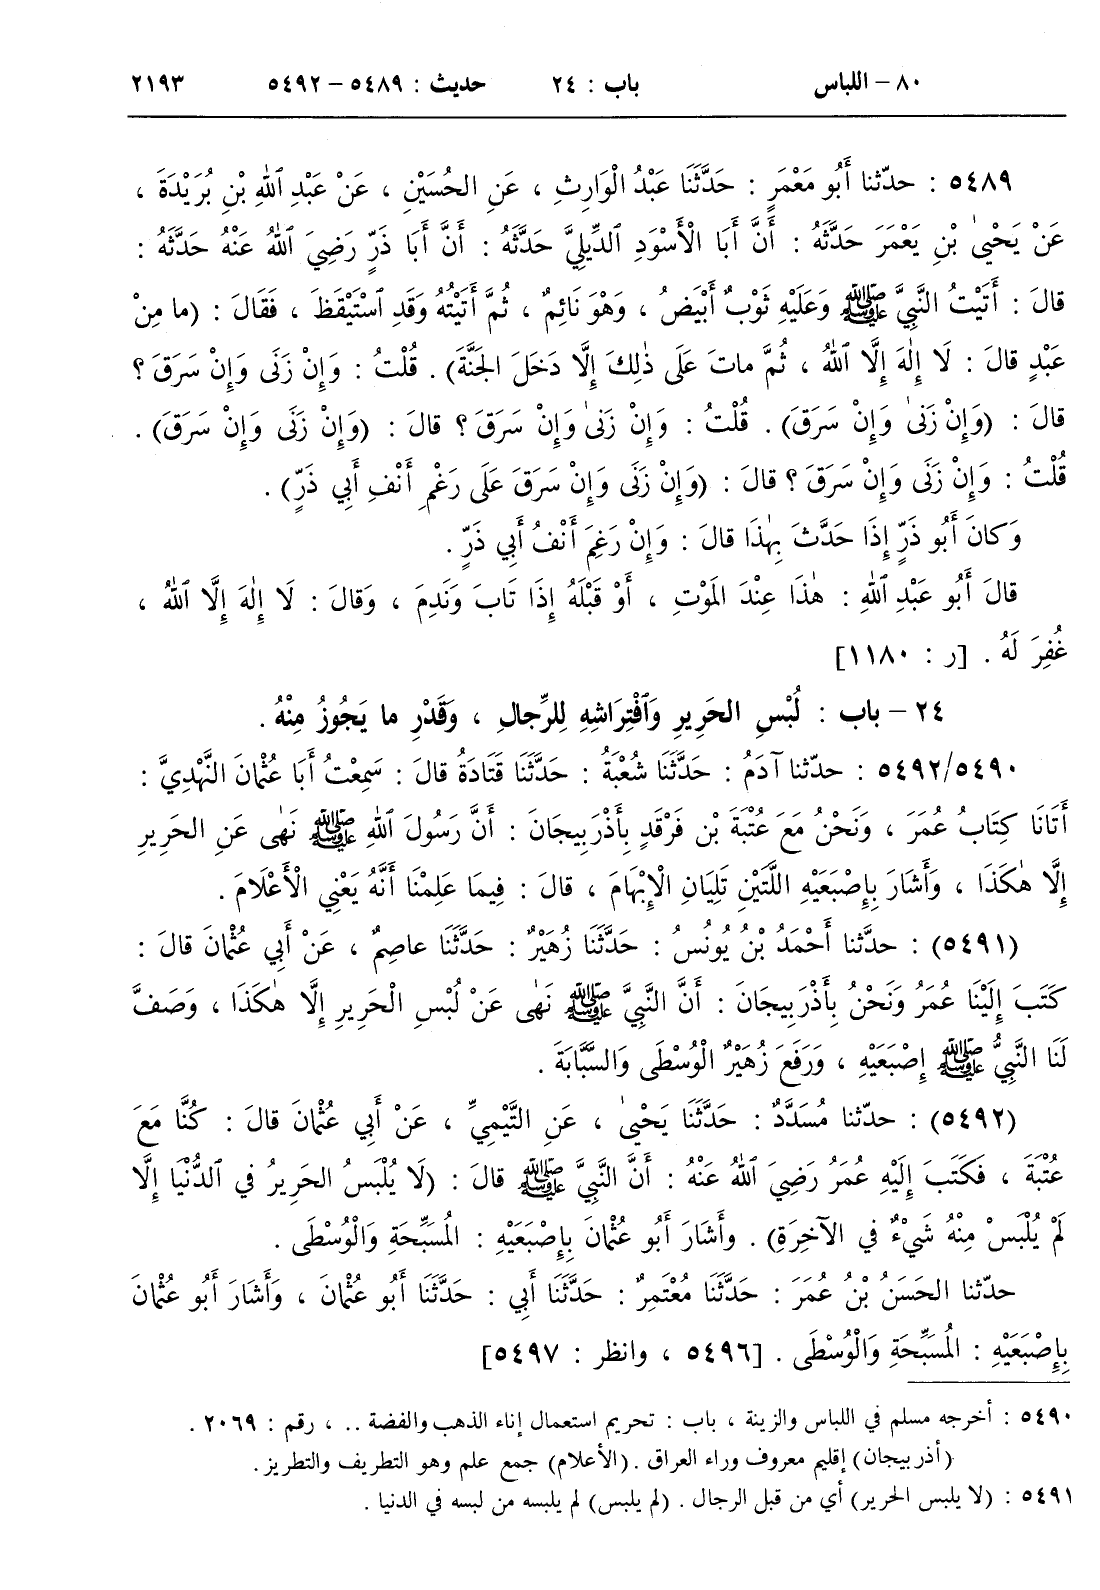 ٨٠ – اللباس باب : ٢٤ حديث : ٥٤٨٩ – ٥٤٩٢ ٢١٩٣
٥٤٨٩ : حدّثنا أَبُو مَعْمَرٍ : حَدَّثَنَا عَبْدُ الْوَارِثِ ، عَنِ الحُسَيْنِ ، عَنْ عَبْدِ ٱللهِ بْنِ بُرَيْدَةَ ،
عَنْ يَحْيىٰ بْنِ يَعْمَرَ حَدَّثَهُ : أَنَّ أَبَا الْأَسْوَدِ ٱلدِّيلِيَّ حَدَّثَهُ : أَنَّ أَبَا ذَرٍّ رَضِيَ ٱللهُ عَنْهُ حَدَّثَهُ :
قالَ : أَتَيْتُ النَّبِيَّ ﷺ وَعَلَيْهِ ثَوْبٌ أَبْيَضُ ، وَهْوَ نَائِمٌ ، ثُمَّ أَتَيْتُهُ وَقَدِ ٱسْتَيْقَظَ ، فَقَالَ : (ما مِنْ
عَبْدٍ قالَ : لَا إِلٰهَ إِلَّا ٱللهُ ، ثُمَّ ماتَ عَلَى ذٰلِكَ إِلَّا دَخَلَ الجَنَّةَ) . قُلْتُ : وَإِنْ زَنَى وَإِنْ سَرَقَ ؟
قالَ : (وَإِنْ زَنىٰ وَإِنْ سَرَقَ) . قُلْتُ : وَإِنْ زَنىٰ وَإِنْ سَرَقَ ؟ قالَ : (وَإِنْ زَنَى وَإِنْ سَرَقَ) .
قُلْتُ : وَإِنْ زَنَى وَإِنْ سَرَقَ ؟ قالَ : (وَإِنْ زَنَى وَإِنْ سَرَقَ عَلَى رَغْمِ أَنْفِ أَبِي ذَرٍّ) .
وَكانَ أَبُو ذَرٍّ إِذَا حَدَّثَ بِهٰذَا قالَ : وَإِنْ رَغِمَ أَنْفُ أَبِي ذَرٍّ .
قالَ أَبُو عَبْدِ ٱللهِ : هٰذَا عِنْدَ المَوْتِ ، أَوْ قَبْلَهُ إِذَا تَابَ وَنَدِمَ ، وَقالَ : لَا إِلٰهَ إِلَّا ٱللهُ ،
غُفِرَ لَهُ . [ر : ١١٨٠]
٢٤ – باب : لُبْسِ الحَرِيرِ وَٱفْتِرَاشِهِ لِلرِّجالِ ، وَقَدْرِ ما يَجُوزُ مِنْهُ .
٥٤٩٢/٥٤٩٠ : حدّثنا آدَمُ : حَدَّثَنَا شُعْبَةُ : حَدَّثَنَا قَتَادَةُ قالَ : سَمِعْتُ أَبَا عُثْمانَ النَّهْدِيَّ :
أَتَانَا كِتَابُ عُمَرَ ، وَنَحْنُ مَعَ عُتْبَةَ بْنِ فَرْقَدٍ بِأَذْرَبِيجَانَ : أَنَّ رَسُولَ ٱللهِ ﷺ نَهٰى عَنِ الحَرِيرِ
إِلَّا هٰكَذَا ، وَأَشَارَ بِإِصْبَعَيْهِ اللَّتَيْنِ تَلِيَانِ الْإِبْهَامَ ، قالَ : فِيمَا عَلِمْنَا أَنَّهُ يَعْنِي الْأَعْلَامَ .
(٥٤٩١) : حدّثنا أَحْمَدُ بْنُ يُونُسُ : حَدَّثَنَا زُهَيْرٌ : حَدَّثَنَا عاصِمٌ ، عَنْ أَبِي عُثْمَانَ قالَ :
كَتَبَ إِلَيْنَا عُمَرُ وَنَحْنُ بِأَذْرَبِيجَانَ : أَنَّ النَّبِيَّ ﷺ نَهٰى عَنْ لُبْسِ الْحَرِيرِ إِلَّا هٰكَذَا ، وَصَفَّ
لَنَا النَّبِيُّ ﷺ إِصْبَعَيْهِ ، وَرَفَعَ زُهَيْرٌ الْوُسْطَى وَالسَّبَّابَةَ .
(٥٤٩٢) : حدّثنا مُسَدَّدٌ : حَدَّثَنَا يَحْيىٰ ، عَنِ التَّيْمِيِّ ، عَنْ أَبِي عُثْمَانَ قالَ : كُنَّا مَعَ
عُتْبَةَ ، فَكَتَبَ إِلَيْهِ عُمَرُ رَضِيَ ٱللهُ عَنْهُ : أَنَّ النَّبِيَّ ﷺ قالَ : (لَا يُلْبَسُ الحَرِيرُ فِي ٱلدُّنْيَا إِلَّا
لَمْ يُلْبَسْ مِنْهُ شَيْءٌ فِي الآخِرَةِ) . وَأَشَارَ أَبُو عُثْمَانَ بِإِصْبَعَيْهِ : المُسَبِّحَةِ وَالْوُسْطَى .
حدّثنا الحَسَنُ بْنُ عُمَرَ : حَدَّثَنَا مُعْتَمِرٌ : حَدَّثَنَا أَبِي : حَدَّثَنَا أَبُو عُثْمَانَ ، وَأَشَارَ أَبُو عُثْمَانَ
بِإِصْبَعَيْهِ : المُسَبِّحَةِ وَالْوُسْطَى . [٥٤٩٦ ، وانظر : ٥٤٩٧]
٥٤٩٠ : أخرجه مسلم في اللباس والزينة ، باب : تحريم استعمال إناء الذهب والفضة .. ، رقم : ٢٠٦٩ .
(أذربيجان) إقليم معروف وراء العراق . (الأعلام) جمع علم وهو التطريف والتطريز .
٥٤٩١ : (لا يلبس الحرير) أي من قبل الرجال . (لم يلبس) لم يلبسه من لبسه في الدنيا .